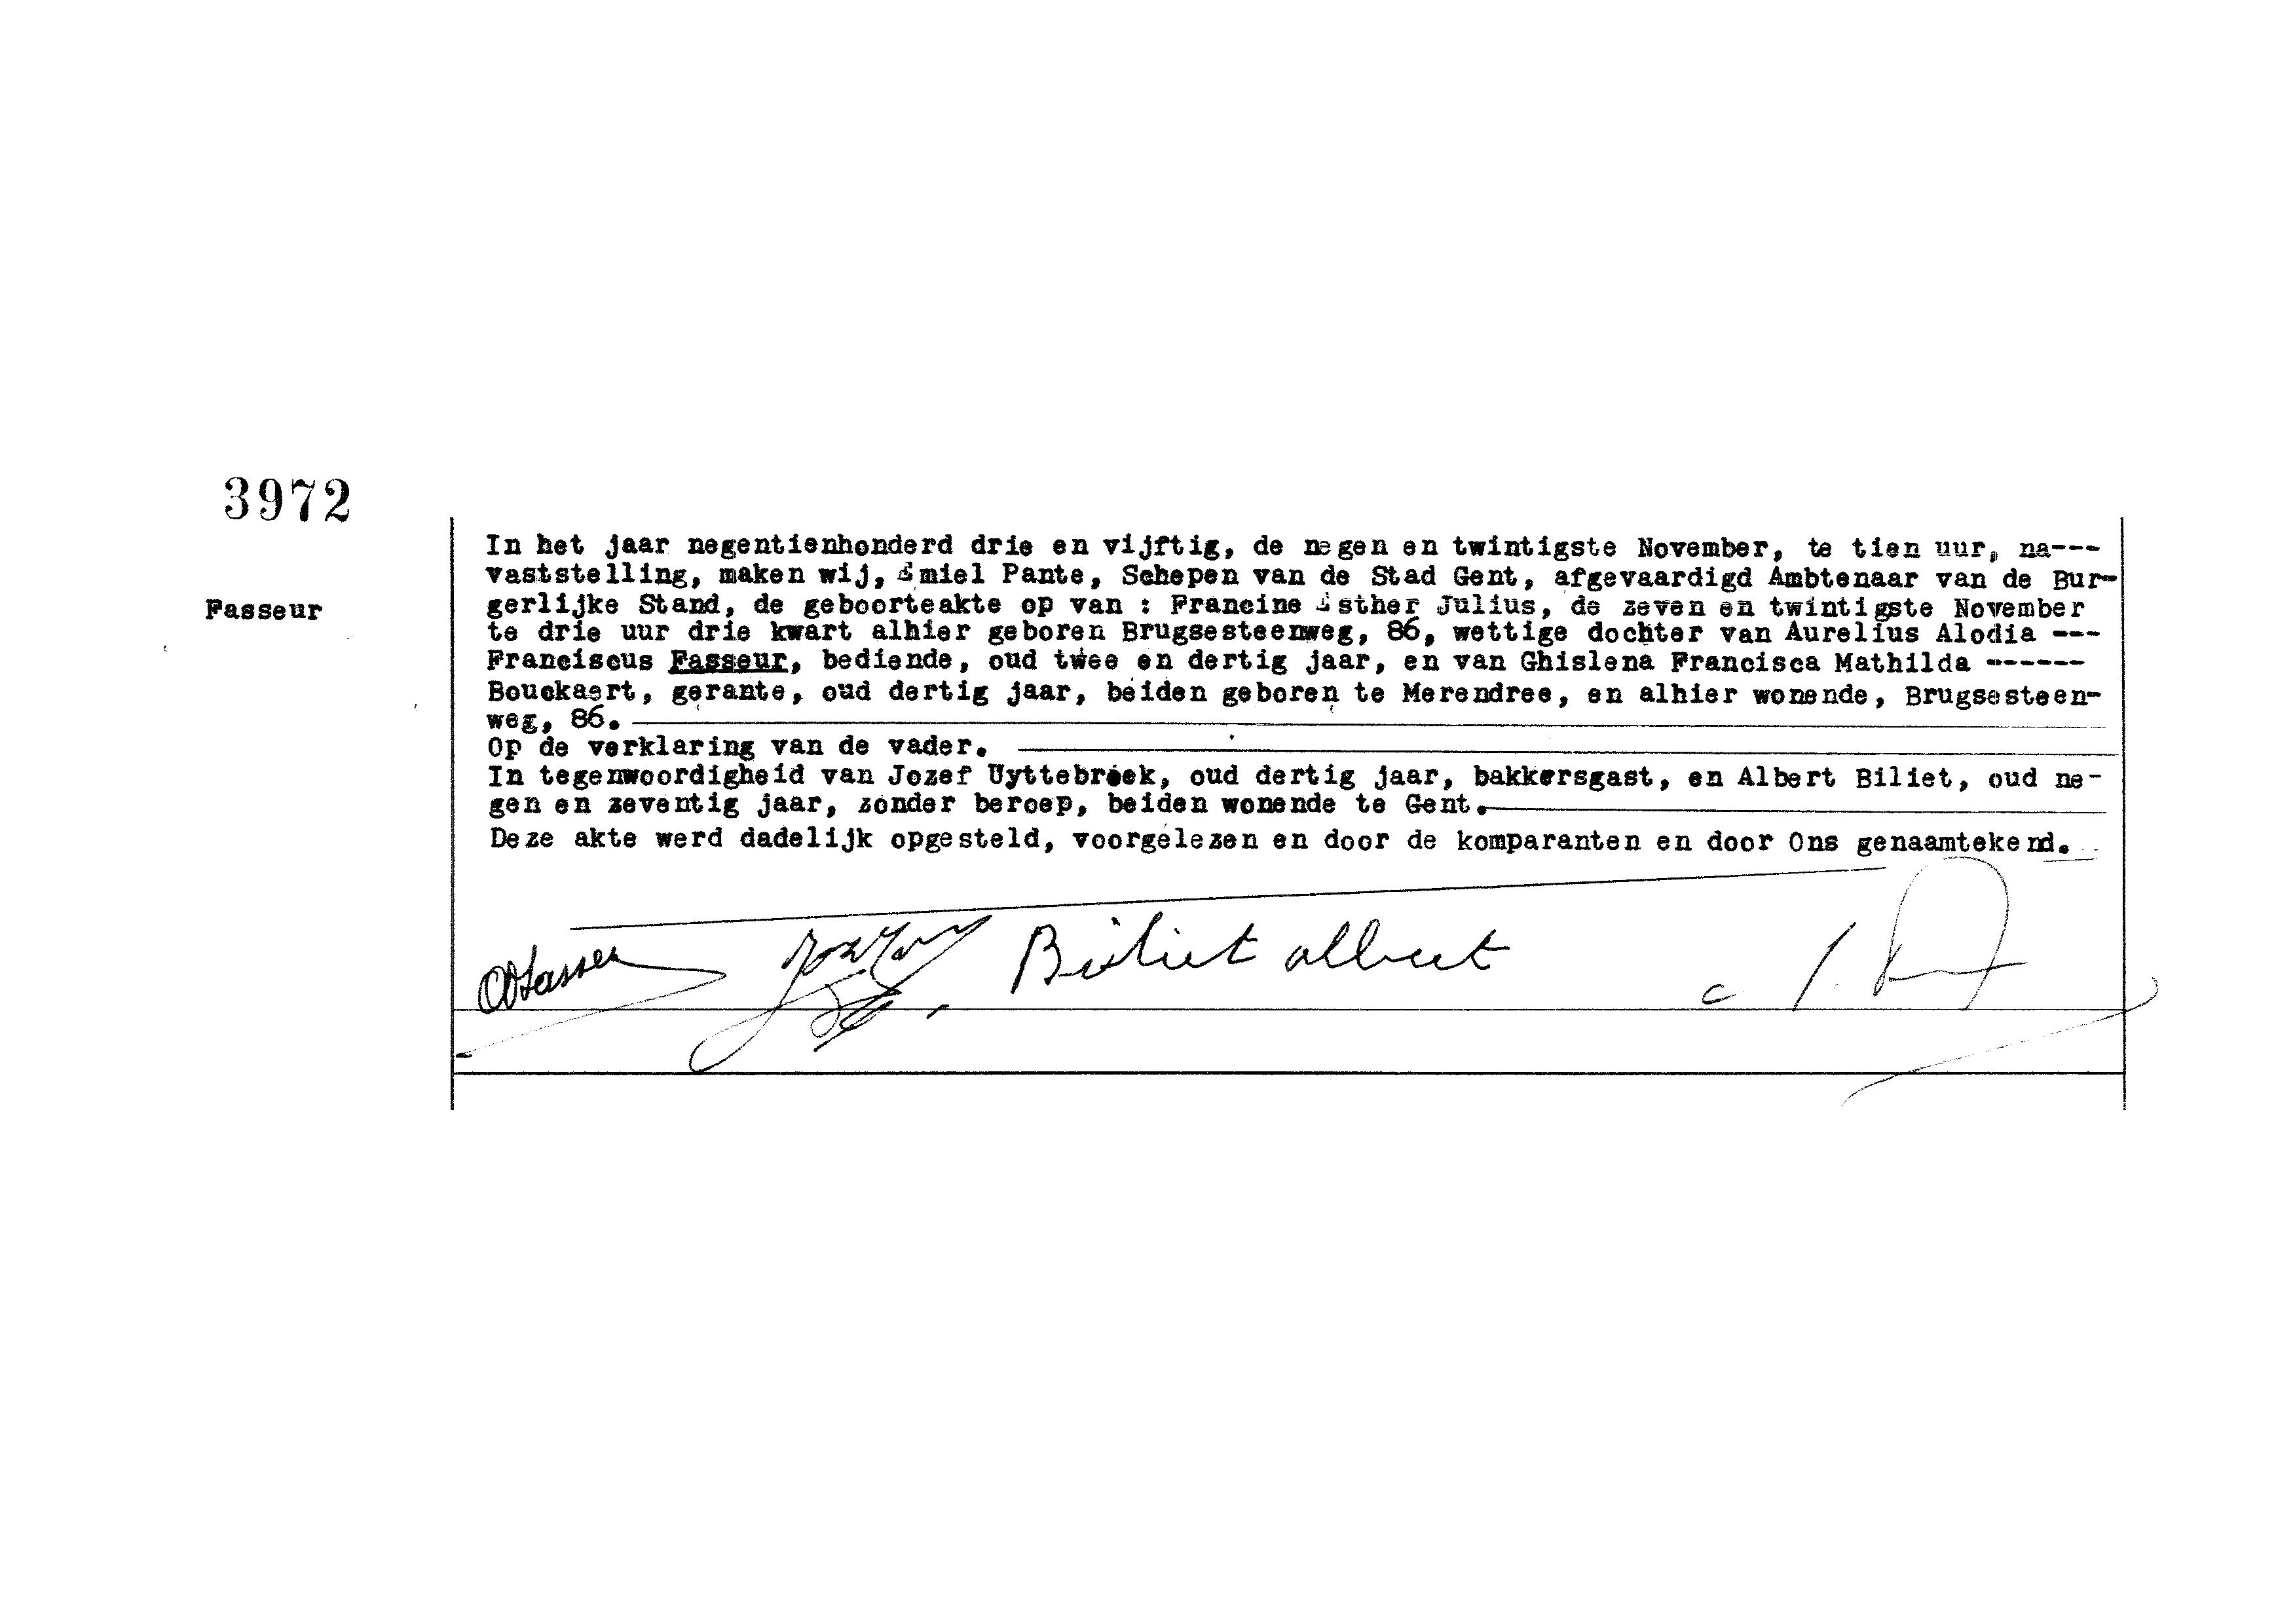 3972
In het jaar negentienhonderd drie en vijftig, de negen en twintigste November, te tien uur, na---
vaststelling, maken wij, Emiel Pante, Schepen van de Stad Gent, afgevaardigd Ambtenaar van de Bur-
Fasseur
gerlijke Stand, de geboorteakte op van : Francine Esther Julius, de zeven en twintigste November
te drie uur drie kwart alhier geboren Brugsesteenweg, 86, wettige dochter van Aurelius Alodia ---
Franciscus Fasseur, bediende, oud twee en dertig jaar, en van Ghislena Francisca Mathilda ------
Bouckaert, gerante, oud dertig jaar, beiden geboren te Merendree, en alhier wonende, Brugsesteen-
weg, 86.
Op de verklaring van de vader.
In tegenwoordigheid van Jozef Uyttebroek, oud dertig jaar, bakkersgast, en Albert Biliet, oud ne-
gen en zeventig jaar, zonder beroep, beiden wonende te Gent.
Deze akte werd dadelijk opgesteld, voorgelezen en door de komparanten en door Ons genaamtekend.
Biliet albert